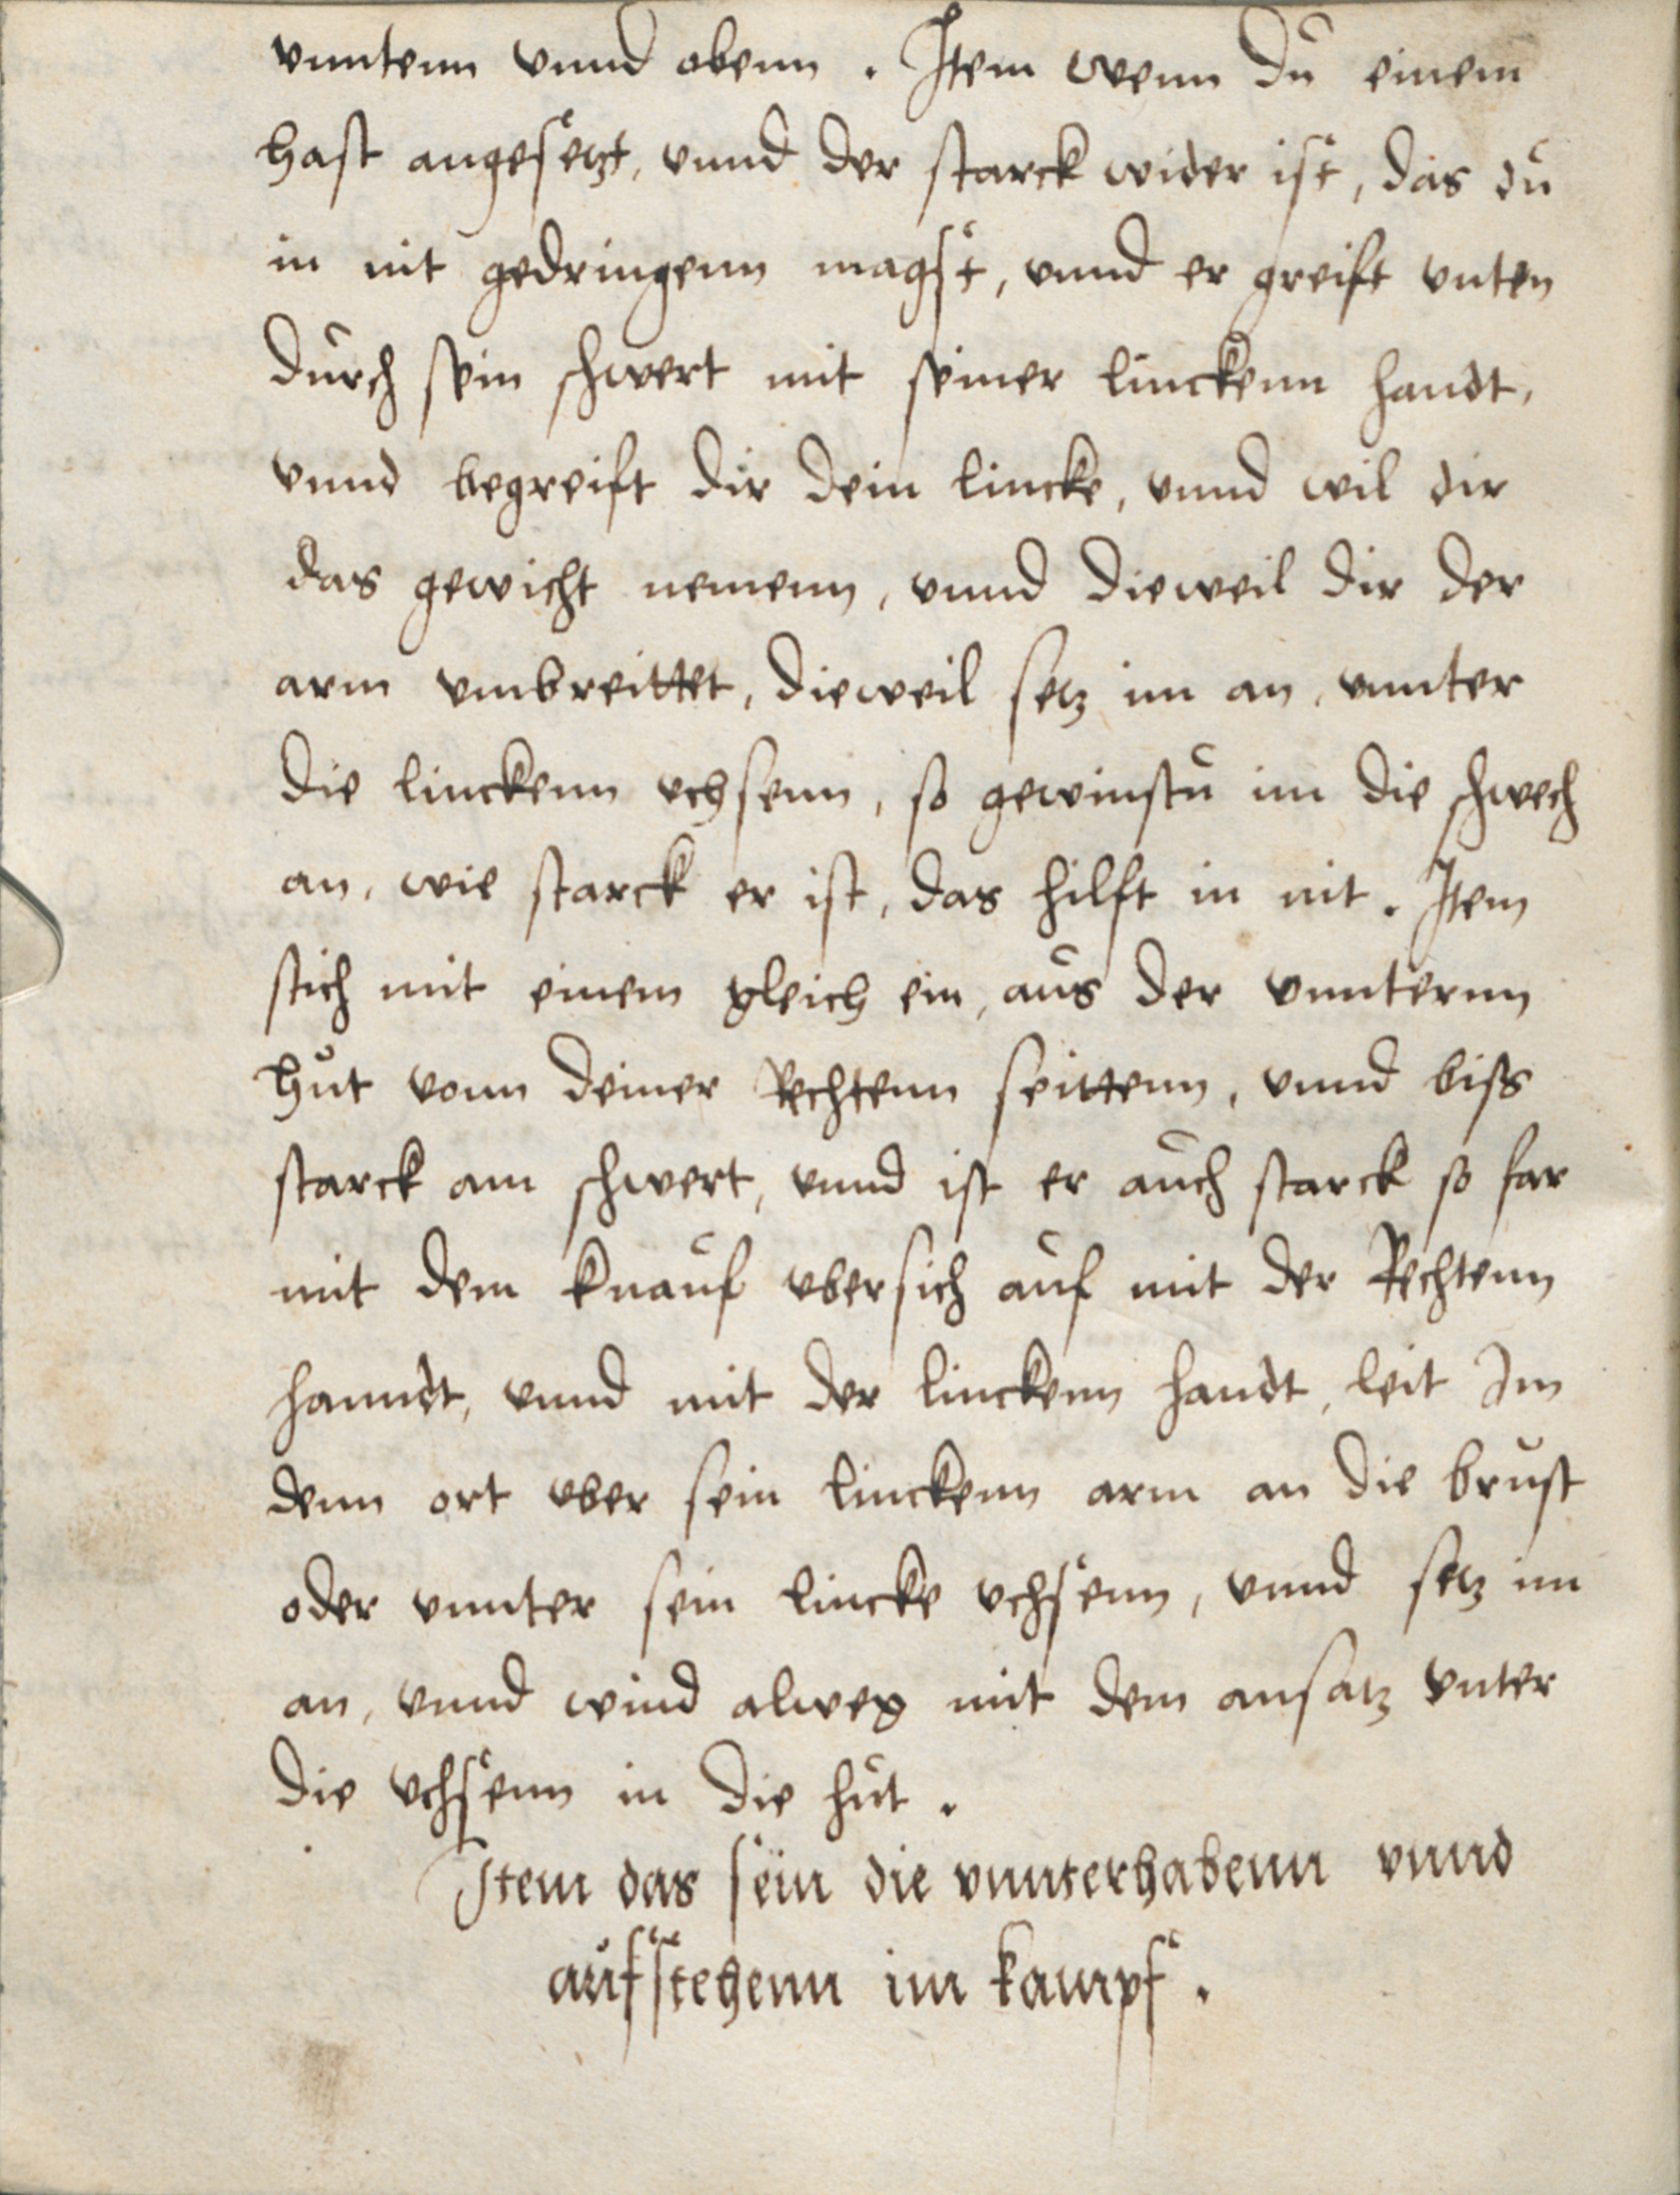 vnntenn vnnd obenn. Item wenn dü einem
hast angesetzt, vnnd der starck wider ist, das dü
in nit gedringenn magst, vnnd er greift vnten
dürch sein schwert mit seiner linckenn handt,
vnnd begreift dir dein lincke, vnnd wil dir
das gewicht nemenn, vnnd dieweil dir der
arm vmbreittet, dieweil setz im an, vnnter
die linckenn vchsenn, so gewinstü im die schwech
an, wie starck er ist, das hilft in nit. Item
stich mit einem gleich ein, aüs der vnnternn
hüt vonn deiner Rechtenn seittenn, vnnd biss
starck am schwert, vnnd ist er aüch starck so far
mit dem knaüf vbersich aüf mit der Rechtenn
hanndt, vnnd mit der linckenn handt, leit Im
denn ort vber sein linckenn arm an die brüst
oder vnnter sein lincke vchsenn, vnnd setz im
an, vnnd wind alweg mit dem ansatz vnter
die vchsenn in die hüt.
Item das sein die vnnterhabenn vnnd
aüfstehenn im kampf.